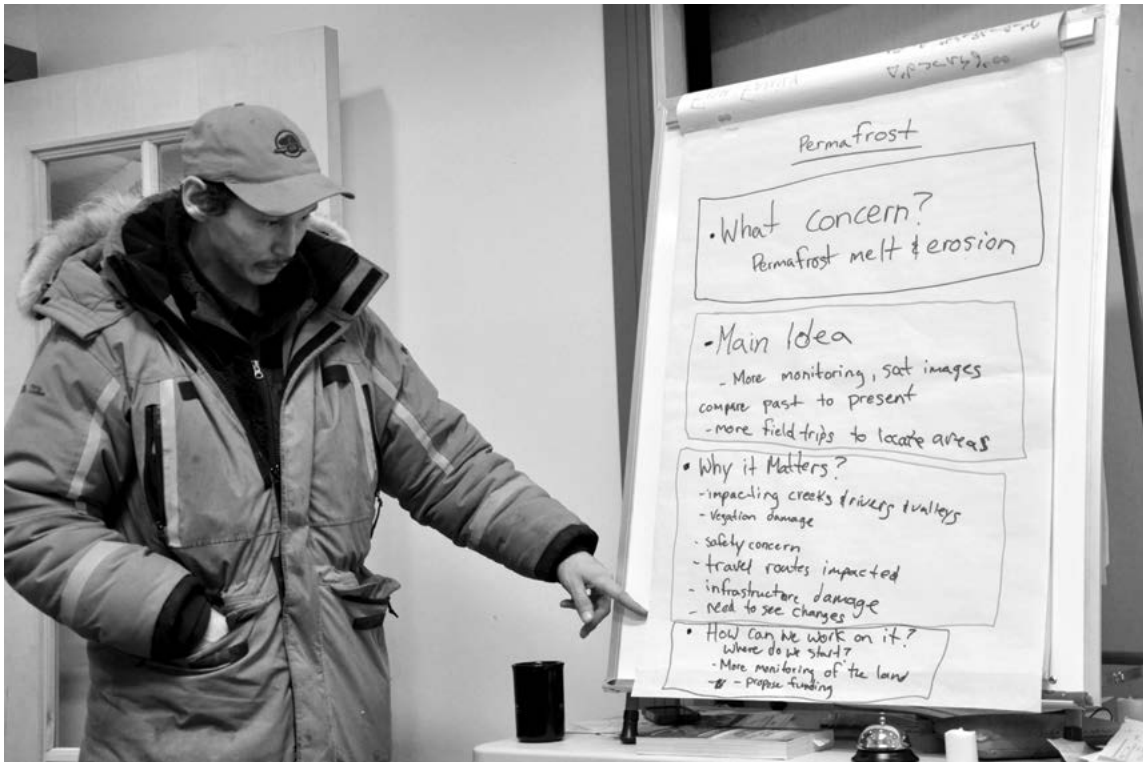 Permafrost
• What concern?
Permafrost melt & erosion
• Main Idea
- More monitoring, sat images
compare past to present
- more field trips to locate areas
• Why it Matters?
- impacting creeks & rivers & valleys
- vegation damage
- safety concern
- travel routes impacted
- infrastructure damage
- need to see changes
• How can we work on it?
Where do we start?
- More monitoring of the land
- propose funding